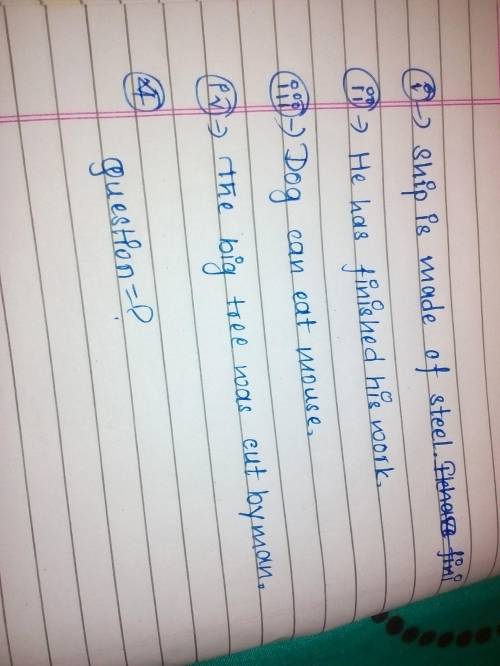 i → ship is made of steel. I have fini
ii → He has finished his work.
iii → Dog can eat mouse.
iv → The big tree was cut by man.
question = ?